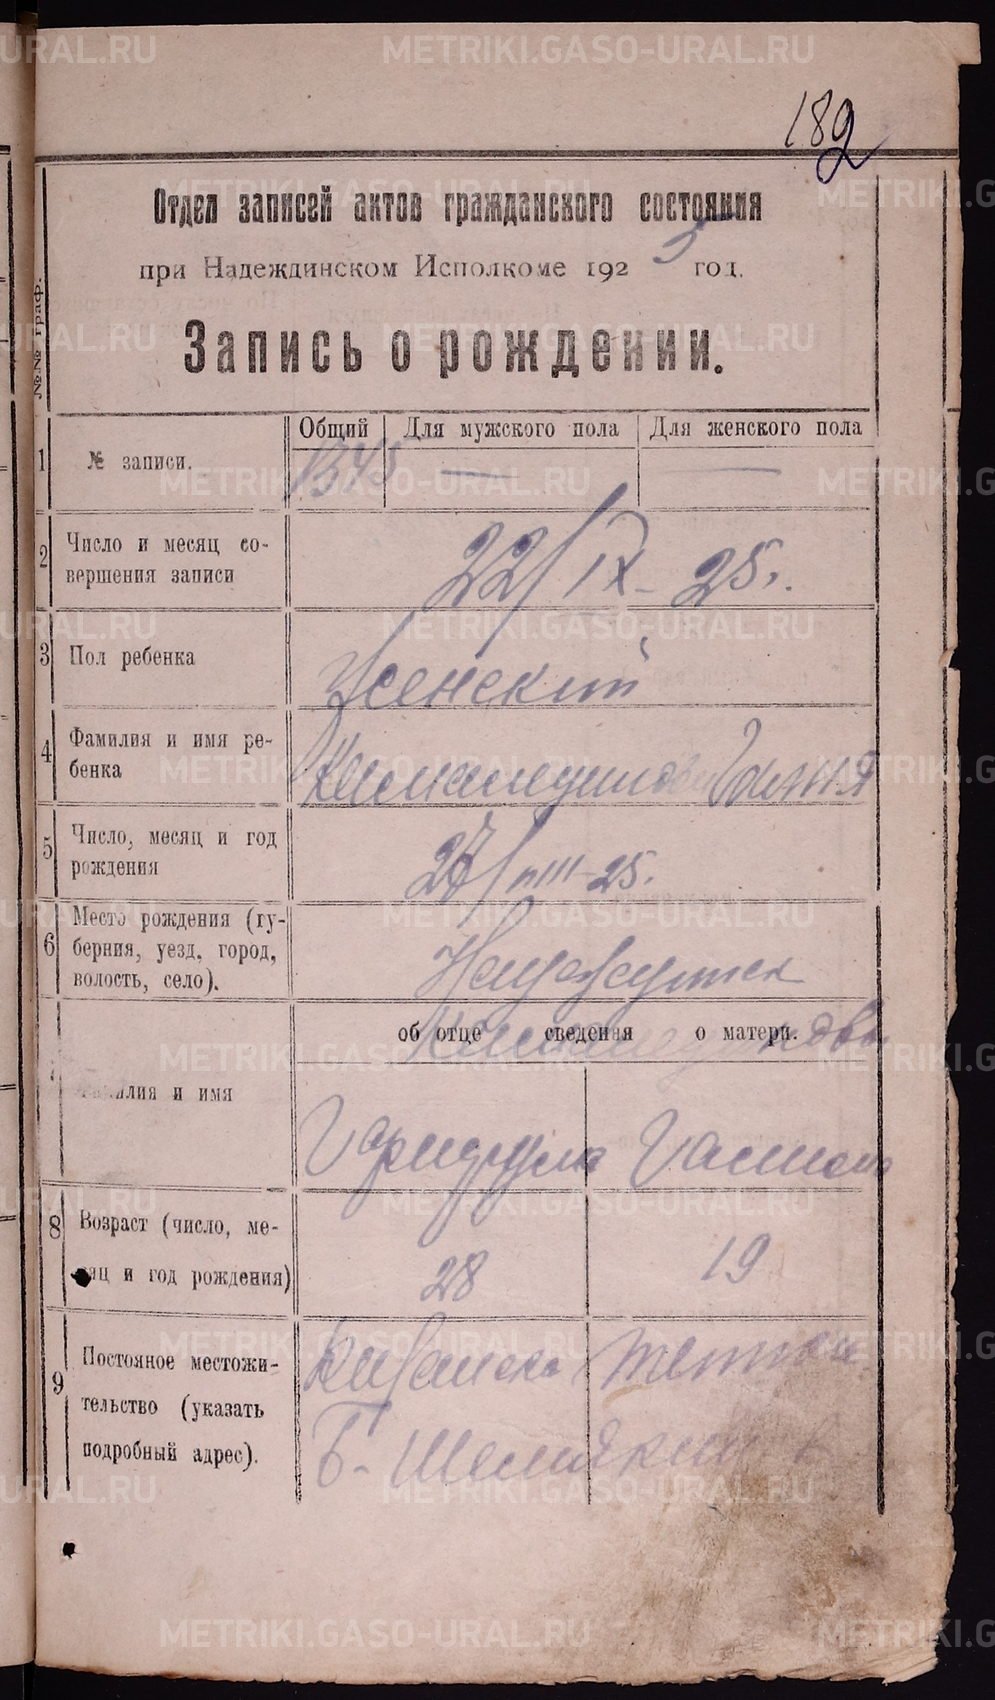 182
Отдел записей актов гражданского состояния
при Надеждинском Исполкоме 1925 год.
Запись о рождении.
№№ граф.
Общий Для мужского пола Для женского пола
1 № записи. 1345 — —
2 Число и месяц со-
вершения записи
22/IX-25.
3 Пол ребенка Женский
4 Фамилия и имя ре-
бенка
5 Число, месяц и год
рождения
27/VIII-25.
6 Место рождения (гу-
берния, уезд, город,
волость, село).
об отце сведения о матери.
7 Фамилия и имя
8 Возраст (число, ме-
сяц и год рождения)
28 19
9 Постояное местожи-
тельство (указать
подробный адрес).
METRIKI.GASO-URAL.RU